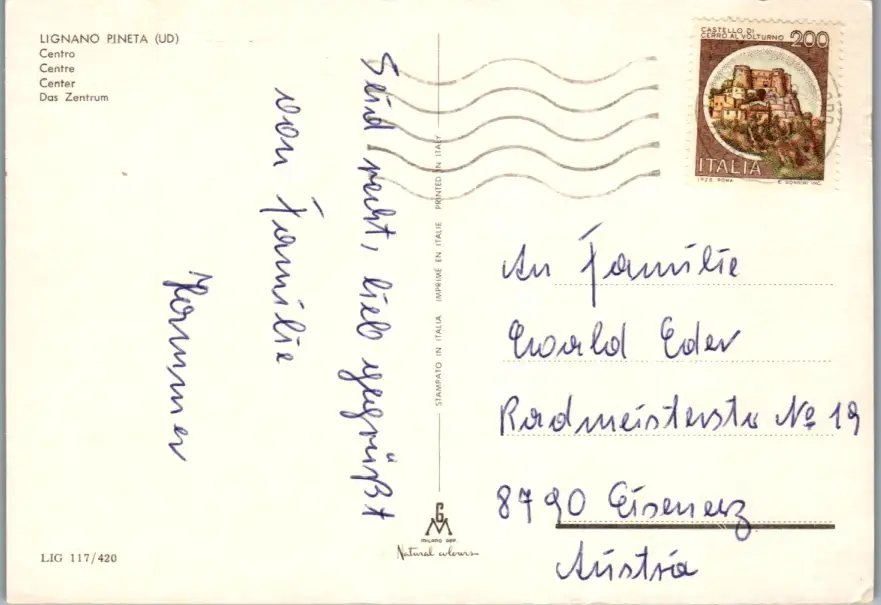 LIGNANO PINETA (UD)
Centro
Centre
Center
Das Zentrum
Seid recht, lieb gegrüßt
von Familie
Hammer
STAMPATO IN ITALIA IMPRIMÉ EN ITALIE PRINTED IN ITALY
CASTELLO DI
CERRO AL VOLTURNO 200
ITALIA
I.P.Z.S. ROMA E. DONNINI INC.
An Familie
Ewald Eder
Radmeisterstr No 19
8790 Eisenerz
Austria
GM
MILANO DEP.
Natural colours
LIG 117/420